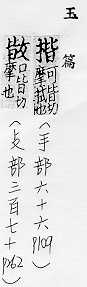 玉篇
揩 可皆切
摩拭也
(手部六十六 P109)
口皆切
摩也
(攴部三百七十 P262)